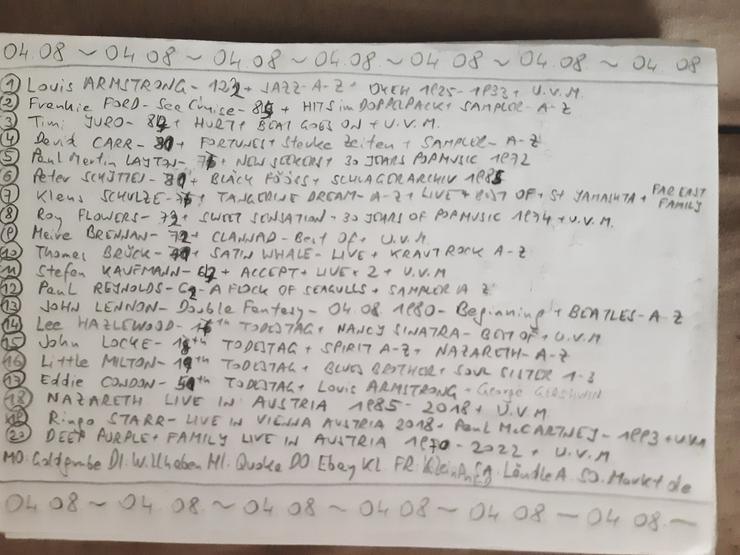 04.08 ~ 04.08 ~ 04.08 ~ 04.08 ~ 04.08 ~ 04.08 ~ 04.08
1 Louis ARMSTRONG - 122 + JAZZ - A-Z + OKEH 1925-1933 + U.V.M.
2 Frankie FORD - See Cruise - + HITS im DOPPELPACK + SAMPLER - A-Z
3 Timi YURO - + HURT + BEAT GOES ON + U.V.M.
4 David CARR - + FORTUNES + Starke Zeiten + SAMPLER - A-Z
5 Paul Martin LAYTON - + NEW SEEKERS + 30 YEARS POPMUSIC 1972
6 Peter SCHÜTTEN - + BLÄCK FÖÖSS + SCHLAGERARCHIV 1985
7 Klaus SCHULZE - + TANGERINE DREAM - A-Z + LIVE + BEST OF + ST YAMASHTA + FAR EAST FAMILY
8 Roy FLOWERS - 72 + SWEET SENSATION - 30 YEARS OF POPMUSIC 1974 + U.V.M.
9 Maire BRENNAN - 72 + CLANNAD - Best OF + U.V.M.
10 Thomas BRÜCK - + SATIN WHALE - LIVE + KRAUTROCK A-Z
11 Stefan KAUFMANN - + ACCEPT + LIVE x 2 + U.V.M
12 Paul REYNOLDS - 62 - A FLOCK OF SEAGULLS + SAMPLER A Z
13 JOHN LENNON - Double Fantasy - 04.08.1980 - Beginning + BEATLES - A-Z
14 Lee HAZLEWOOD - th TODESTAG + NANCY SINATRA - BEST OF + U.V.M
15 John LOCKE - th TODESTAG + SPIRIT A-Z + NAZARETH - A-Z
16 Little MILTON - th TODESTAG + BLUES BROTHER + SOUL SISTER 1-3
17 Eddie CONDON - th TODESTAG + Louis ARMSTRONG + George GERSHWIN
18 NAZARETH LIVE IN AUSTRIA 1985 - 2018 + U.V.M.
19 Ringo STARR - LIVE IN VIENNA AUSTRIA 2018 + Paul McCARTNEY - 1993 + UVM
20 DEEP PURPLE + FAMILY LIVE IN AUSTRIA 1970 - 2022 + U.V.M.
MO. Goldgrube DI. Willhaben MI. Quoka DO Ebay KL FR. SA. LändleA. SO. Markt de
04.08 ~ 04.08 ~ 04.08 ~ 04.08 ~ 04.08 — 04.08 —